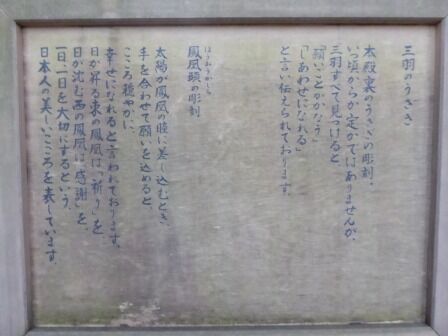 三羽のうさぎ
本殿裏のうさぎの彫刻。
いつ頃からか定かではありませんが、
三羽すべて見つけると、
「願いごとがかなう」
「しあわせになれる」
と言い伝えられております。
ほうおうがしら
鳳凰頭の彫刻
太陽が鳳凰の瞳に差し込むとき、
手を合わせて願いを込めると、
こころ穏やかに、
幸せになれると言われております。
日が昇る東の鳳凰は「祈り」を、
日が沈む西の鳳凰は「感謝」を、
一日、一日を大切にするという、
日本人の美しいこころを表しています。